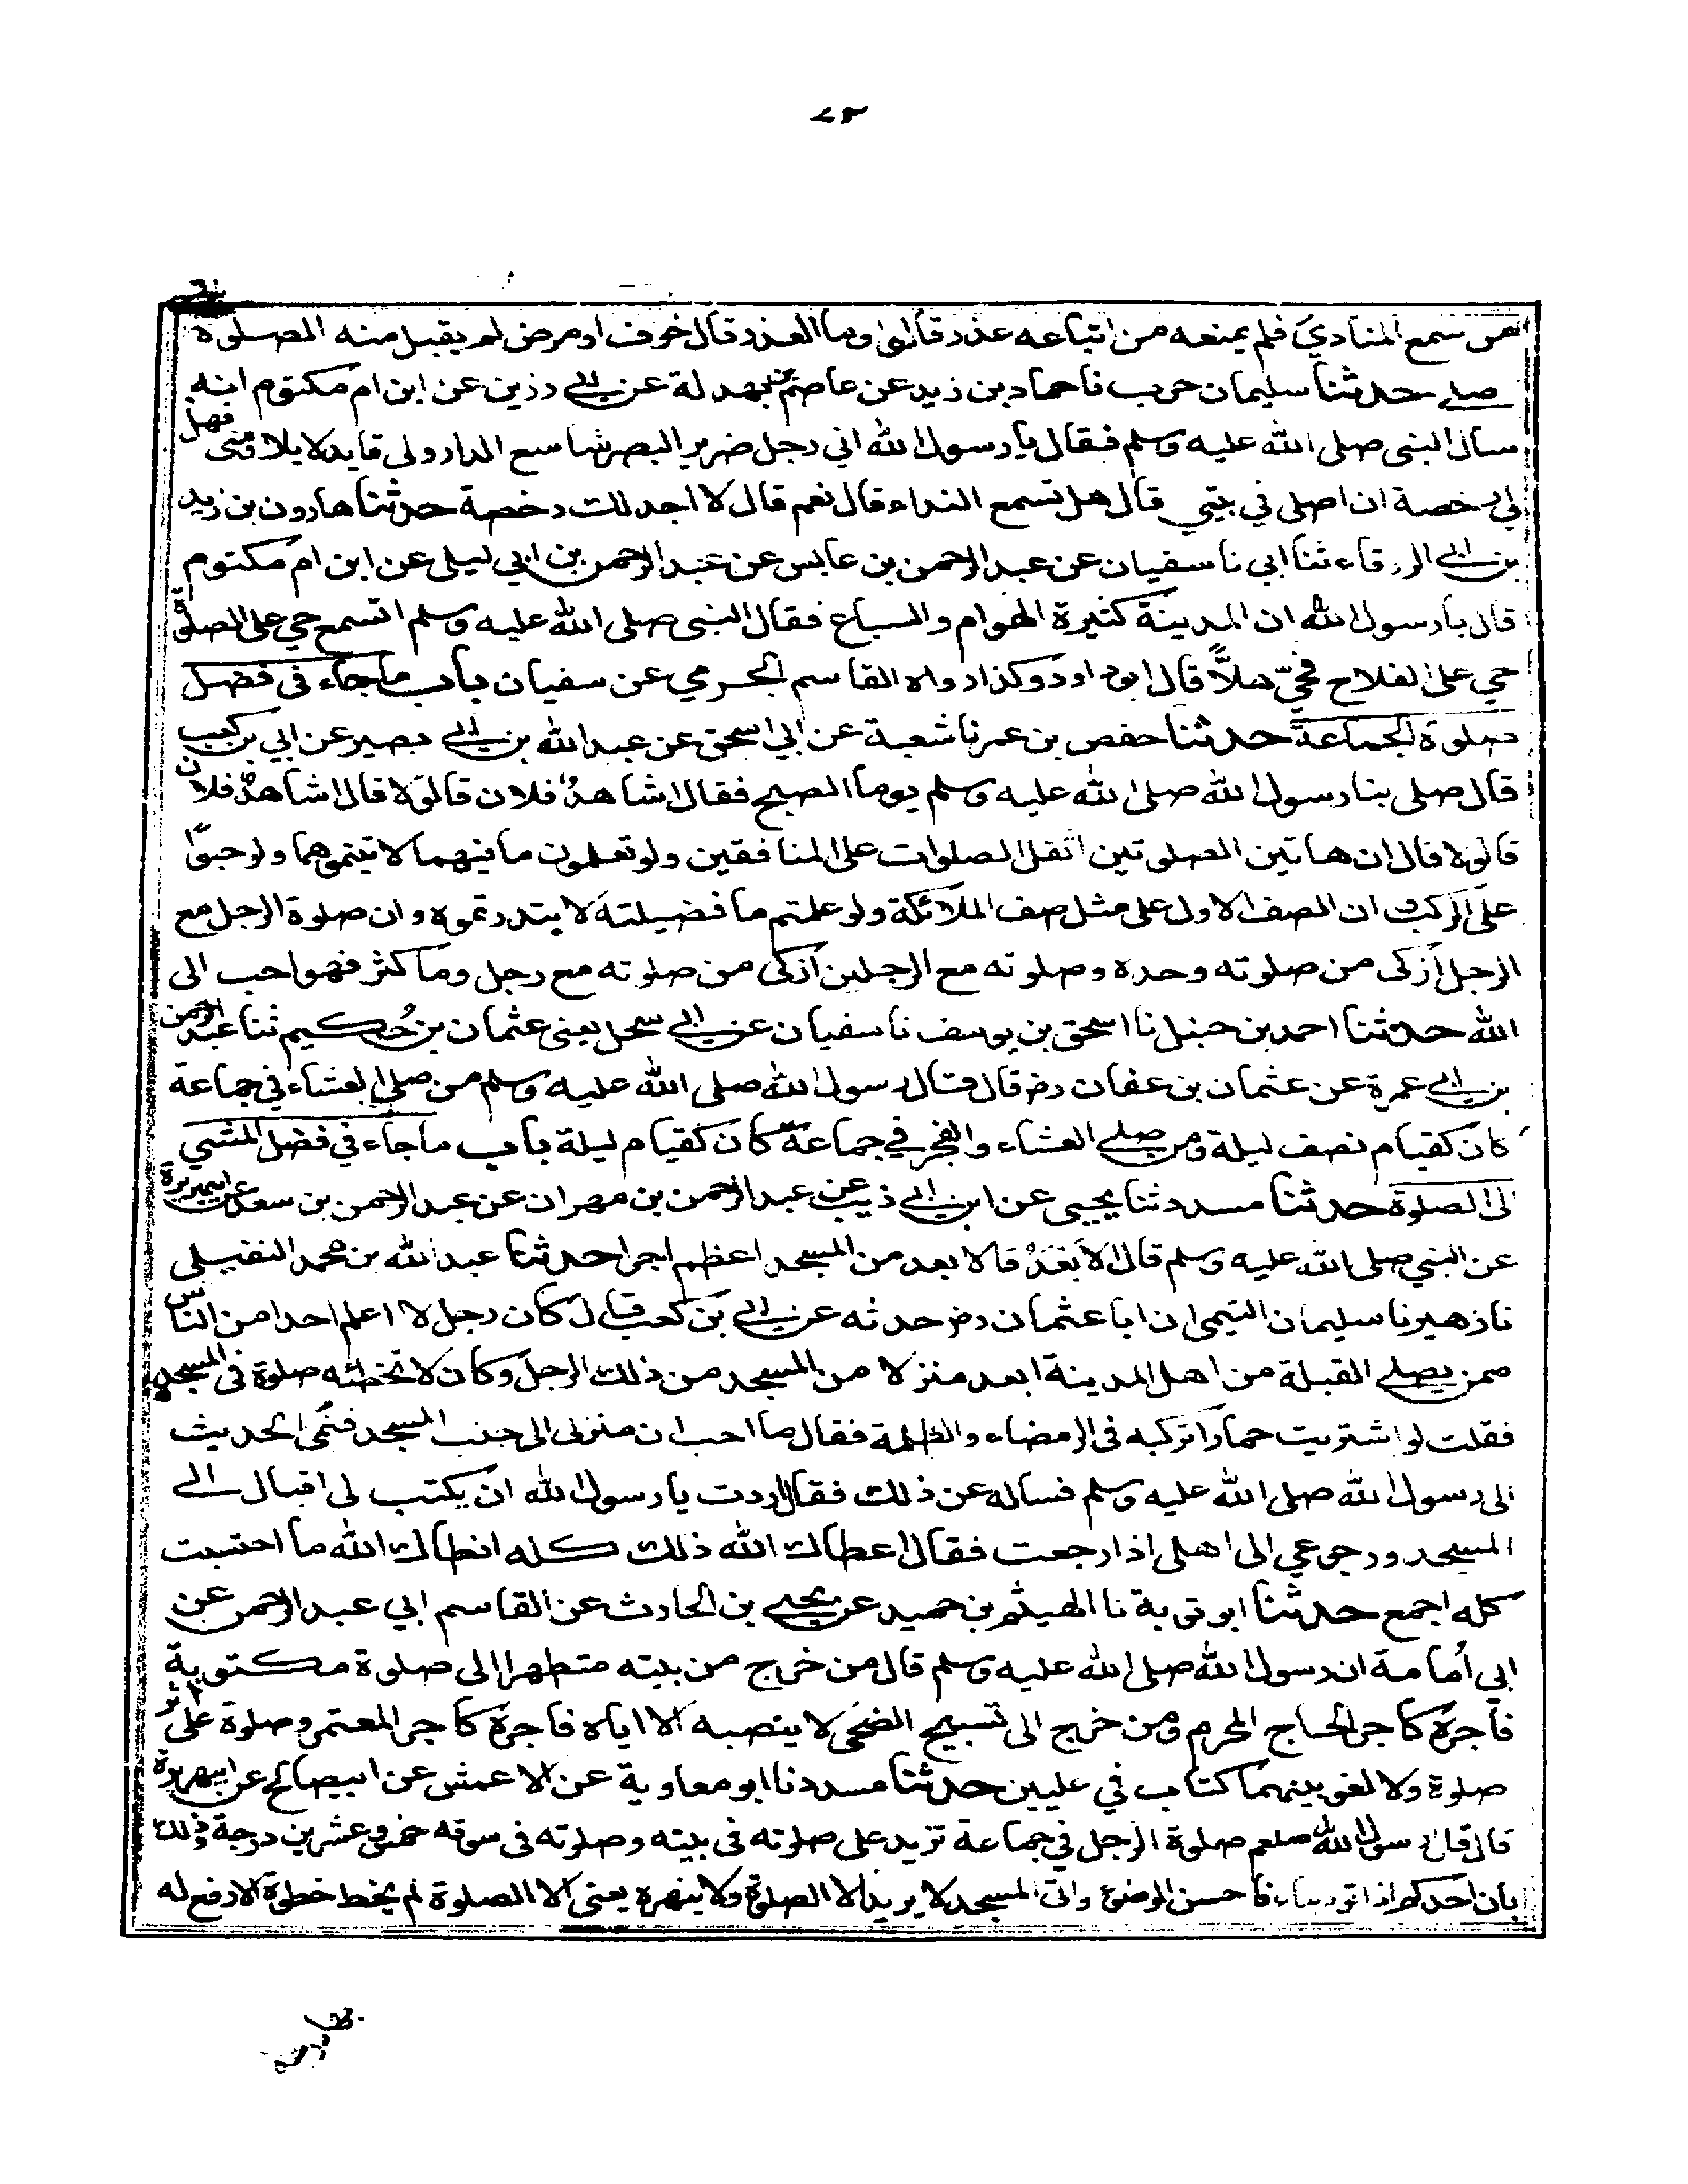 ٧٣
من سمع المنادي فلم يمنعه من اتباعه عذر قالوا وما العذر قال خوف او مرض لم يقبل منه الصلوة
صلى حدثنا سليمان حرب نا حماد بن زيد عن عاصم بن بهدلة عن ابي رزين عن ابن ام مكتوم انه
سال النبي صلى الله عليه وسلم فقال يا رسول الله اني رجل ضرير البصر شاسع الدار ولى قايد لا يلاومنى فهل
لي رخصة ان اصلى في بيتي قال هل تسمع النداء قال نعم قال لا اجد لك رخصة حدثنا هارون بن زيد
بن ابي الزرقاء ثنا ابي نا سفيان عن عبد الرحمن بن عابس عن عبد الرحمن بن ابي ليلى عن ابن ام مكتوم
قال يا رسول الله ان المدينة كثيرة الهوام والسباع فقال النبى صلى الله عليه وسلم اتسمع حي على الصلوة
حي على الفلاح فحيّ هلاً قال ابو داود وكذا رواه القاسم الجرمي عن سفيان باب ما جاء فى فضل
صلوة الجماعة حدثنا حفص بن عمر نا شعبة عن ابي اسحق عن عبد الله بن ابي بصير عن ابي بن كعب
قال صلى بنا رسول الله صلى الله عليه وسلم يوما الصبح فقال اشاهدٌ فلان قالو لا قال اشاهدٌ فلان
قالو لا قال ان هاتين الصلوتين اثقل الصلوات على المنافقين ولو تعلمون ما فيهما لاتيتموهما ولو حبوًا
على الركب ان الصف الاول على مثل صف الملائكة ولو علمتم ما فضيلته لابتدرتموه وان صلوة الرجل مع
الرجل ازكى من صلوته وحده وصلوته مع الرجلين ازكى من صلوته مع رجل وما كثر فهو احب الى
الله حدثنا احمد بن حنبل نا اسحق بن يوسف نا سفيان عن ابي سهل يعنى عثمان بن حُكيم ثنا عبد الرحمن
بن ابي عمرة عن عثمان بن عفان رض قال قال رسول الله صلى الله عليه وسلم من صلى العشاء في جماعة
كان كقيام نصف ليلة ومن صلى العشاء والفجر في جماعة كان كقيام ليلة باب ما جاء في فضل المشي
الى الصلوة حدثنا مسدد ثنا يحيى عن ابن ابي ذيب عن عبد الرحمن بن مهران عن عبد الرحمن بن سعد عن ابيهريرة
عن النبي صلى الله عليه وسلم قال الابَعْدُ فالابعد من المسجد اعظم اجرا حدثنا عبد الله بن محمد النفيلى
نا زهير نا سليمان التيمى ان ابا عثمان رض حدثه عن ابي بن كعب قال كان رجل لا اعلم احدا من الناس
ممن يصلى القبلة من اهل المدينة ابعد منزلا من المسجد من ذلك الرجل وكان لا تخطئه صلوة فى المسجد
فقلت لو اشتريت حمارا تركبه فى الرمضاء والظلمة فقال ما احب ان منزلى الى جنب المسجد فنمى الحديث
الى رسول الله صلى الله عليه وسلم فساله عن ذلك فقال اردت يا رسول الله ان يكتب لى اقبال الى
المسجد ورجوعي الى اهلى اذا رجعت فقال اعطاك الله ذلك كله انطاك الله ما احتسبت
كله اجمع حدثنا ابو توبة نا الهيثم بن حميد عن يحيى بن الحارث عن القاسم ابي عبد الرحمن عن
ابي أمامة ان رسول الله صلى الله عليه وسلم قال من خرج من بيته متطهرا الى صلوة مكتوبة
فاجره كاجر الحاج المحرم ومن خرج الى تسبيح الضحى لا ينصبه الا اياه فاجره كاجر المعتمر وصلوة على اثر
صلوة ولا لغو بينهما كتاب في عليين حدثنا مسدد نا ابو معاوية عن الاعمش عن ابيصالح عن ابيهريرة
قال قال رسول الله صلعم صلوة الرجل في جماعة تزيد على صلوته فى بيته وصلوته فى سوقه خمس وعشرين درجة وذلك
بان احدكم اذا توضاء فاحسن الوضوء واتى المسجد لا يريد الا الصلوة ولا ينهره يعنى الا الصلوة لم يخط خطوة الا رفع له